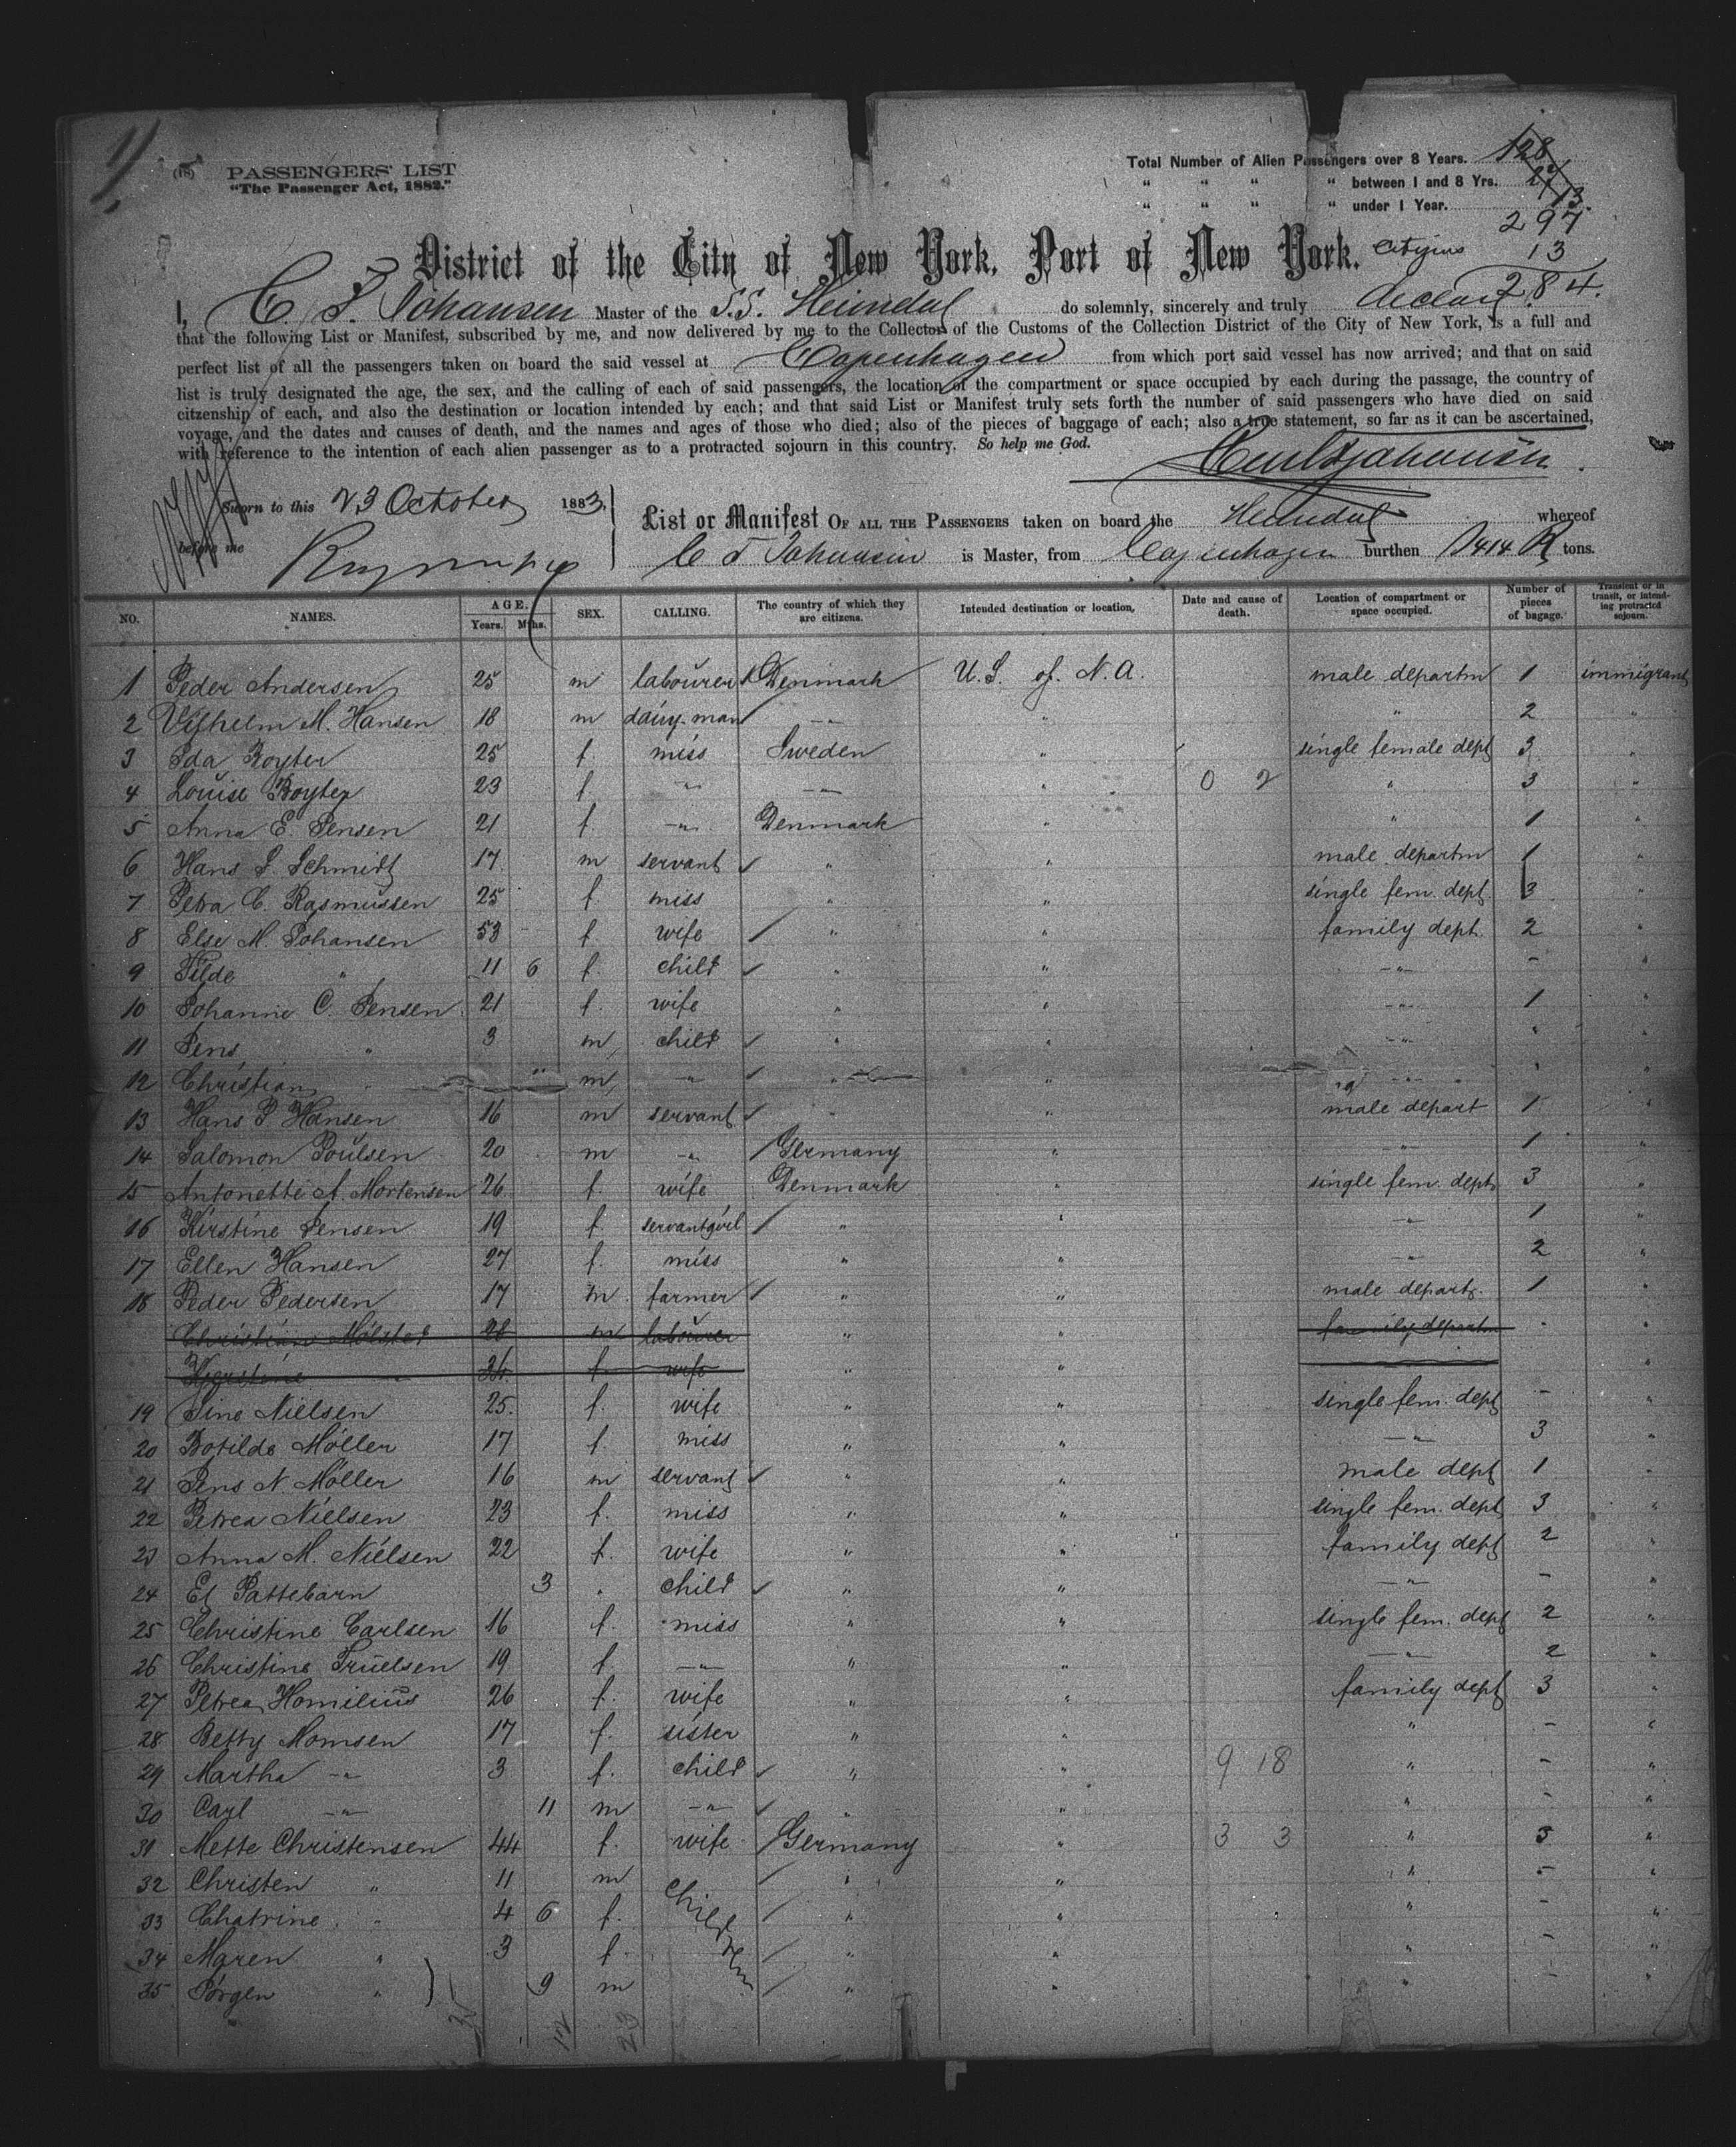 (18) PASSENGERS' LIST
"The Passenger Act, 1882."
Total Number of Alien Passengers over 8 Years. 128
" " " " between 1 and 8 Yrs.
" " " " under 1 Year. 13.
297
District of the City of New York, Port of New York. Citizens 13
284.
I, C. F. Johansen Master of the S.S. Heimdal do solemnly, sincerely and truly declare
that the following List or Manifest, subscribed by me, and now delivered by me to the Collector of the Customs of the Collection District of the City of New York, is a full and
perfect list of all the passengers taken on board the said vessel at Copenhagen from which port said vessel has now arrived; and that on said
list is truly designated the age, the sex, and the calling of each of said passengers, the location of the compartment or space occupied by each during the passage, the country of
citzenship of each, and also the destination or location intended by each; and that said List or Manifest truly sets forth the number of said passengers who have died on said
voyage, and the dates and causes of death, and the names and ages of those who died; also of the pieces of baggage of each; also a true statement, so far as it can be ascertained,
with reference to the intention of each alien passenger as to a protracted sojourn in this country. So help me God.
Sworn to this 23 October 1883,
before me
List or Manifest OF ALL THE PASSENGERS taken on board the Heimdal whereof
C F Johansen is Master, from Copenhagen burthen 1414 tons.
NO. NAMES. AGE. Years. Mths. SEX. CALLING. The country of which they are citizens. Intended destination or location, Date and cause of death. Location of compartment or space occupied. Number of pieces of bagage. Transient or in transit, or intending protracted sojourn.
1 Peder Andersen 25 m labourer Denmark U.S. of N.A. male departm 1 immigrant
2 Vilhelm M. Hansen 18 m dairy-man -"- " " 2 "
3 Ida Boyter 25 f. miss Sweden " single female dept 3 "
4 Louise Boyter 23 f. -"- -"- " 0 2 " 3 "
5 Anna E. Jensen 21 f. -"- Denmark " " 1 "
6 Hans J. Schmidt 17 m servant " " male departm 1 "
7 Petra C. Rasmussen 25 f. miss " " single fem. dept 3 "
8 Else M. Johansen 53 f. wife " " family dept. 2 "
9 Tilde " 11 6 f. child " " -"- - "
10 Johanne C. Jensen 21 f. wife " " -"- 1 "
11 Jens " 3 m child " " -"- " "
12 Christian " m -"- " " -"- " "
13 Hans P Hansen 16 m servant " " male depart 1 "
14 Salomon Poulsen 20 m -"- Germany " -"- 1 "
15 Antonette A. Mortensen 26 f. wife Denmark " single fem. dept. 3 "
16 Kirstine Jensen 19 f. servantgirl " " -"- 1 "
17 Ellen Hansen 27 f. miss " " -"- 2 "
18 Peder Pedersen 17 m. farmer " " male depart. 1 "
Christian Mölsted 28 m labourer " " family departm " "
Kjerstine " f. wife " " "
19 Sine Nielsen 25. f. wife " " single fem. dept - "
20 Botilde Möller 17 f. miss " " -"- 3 "
21 Jens N. Möller 16 m servant " " male dept 1 "
22 Petrea Nielsen 23 f. miss " " single fem. dept 3 "
23 Anna M. Nielsen 22 f. wife " " family dept 2 "
24 Et Pattebarn 3 " child " " -"- - "
25 Christine Carlsen 16 f. miss " " single fem. dept 2 "
26 Christine Truelsen 19 f. -"- " " -"- 2 "
27 Petrea Homilius 26 f. wife " " family dept 3 "
28 Betty Momsen 17 f. sister " " " - "
29 Martha -"- 3 f. child " " 9 18 " - "
30 Carl -"- 11 m -"- " " " - "
31 Mette Christensen 44 f. wife Germany " 3 3 " 5 "
32 Christen " 11 m children " " " - "
33 Chatrine " 4 6 f. " " " - "
34 Maren " 3 f. " " " - "
35 Jörgen " 9 m " " " - "
12 23